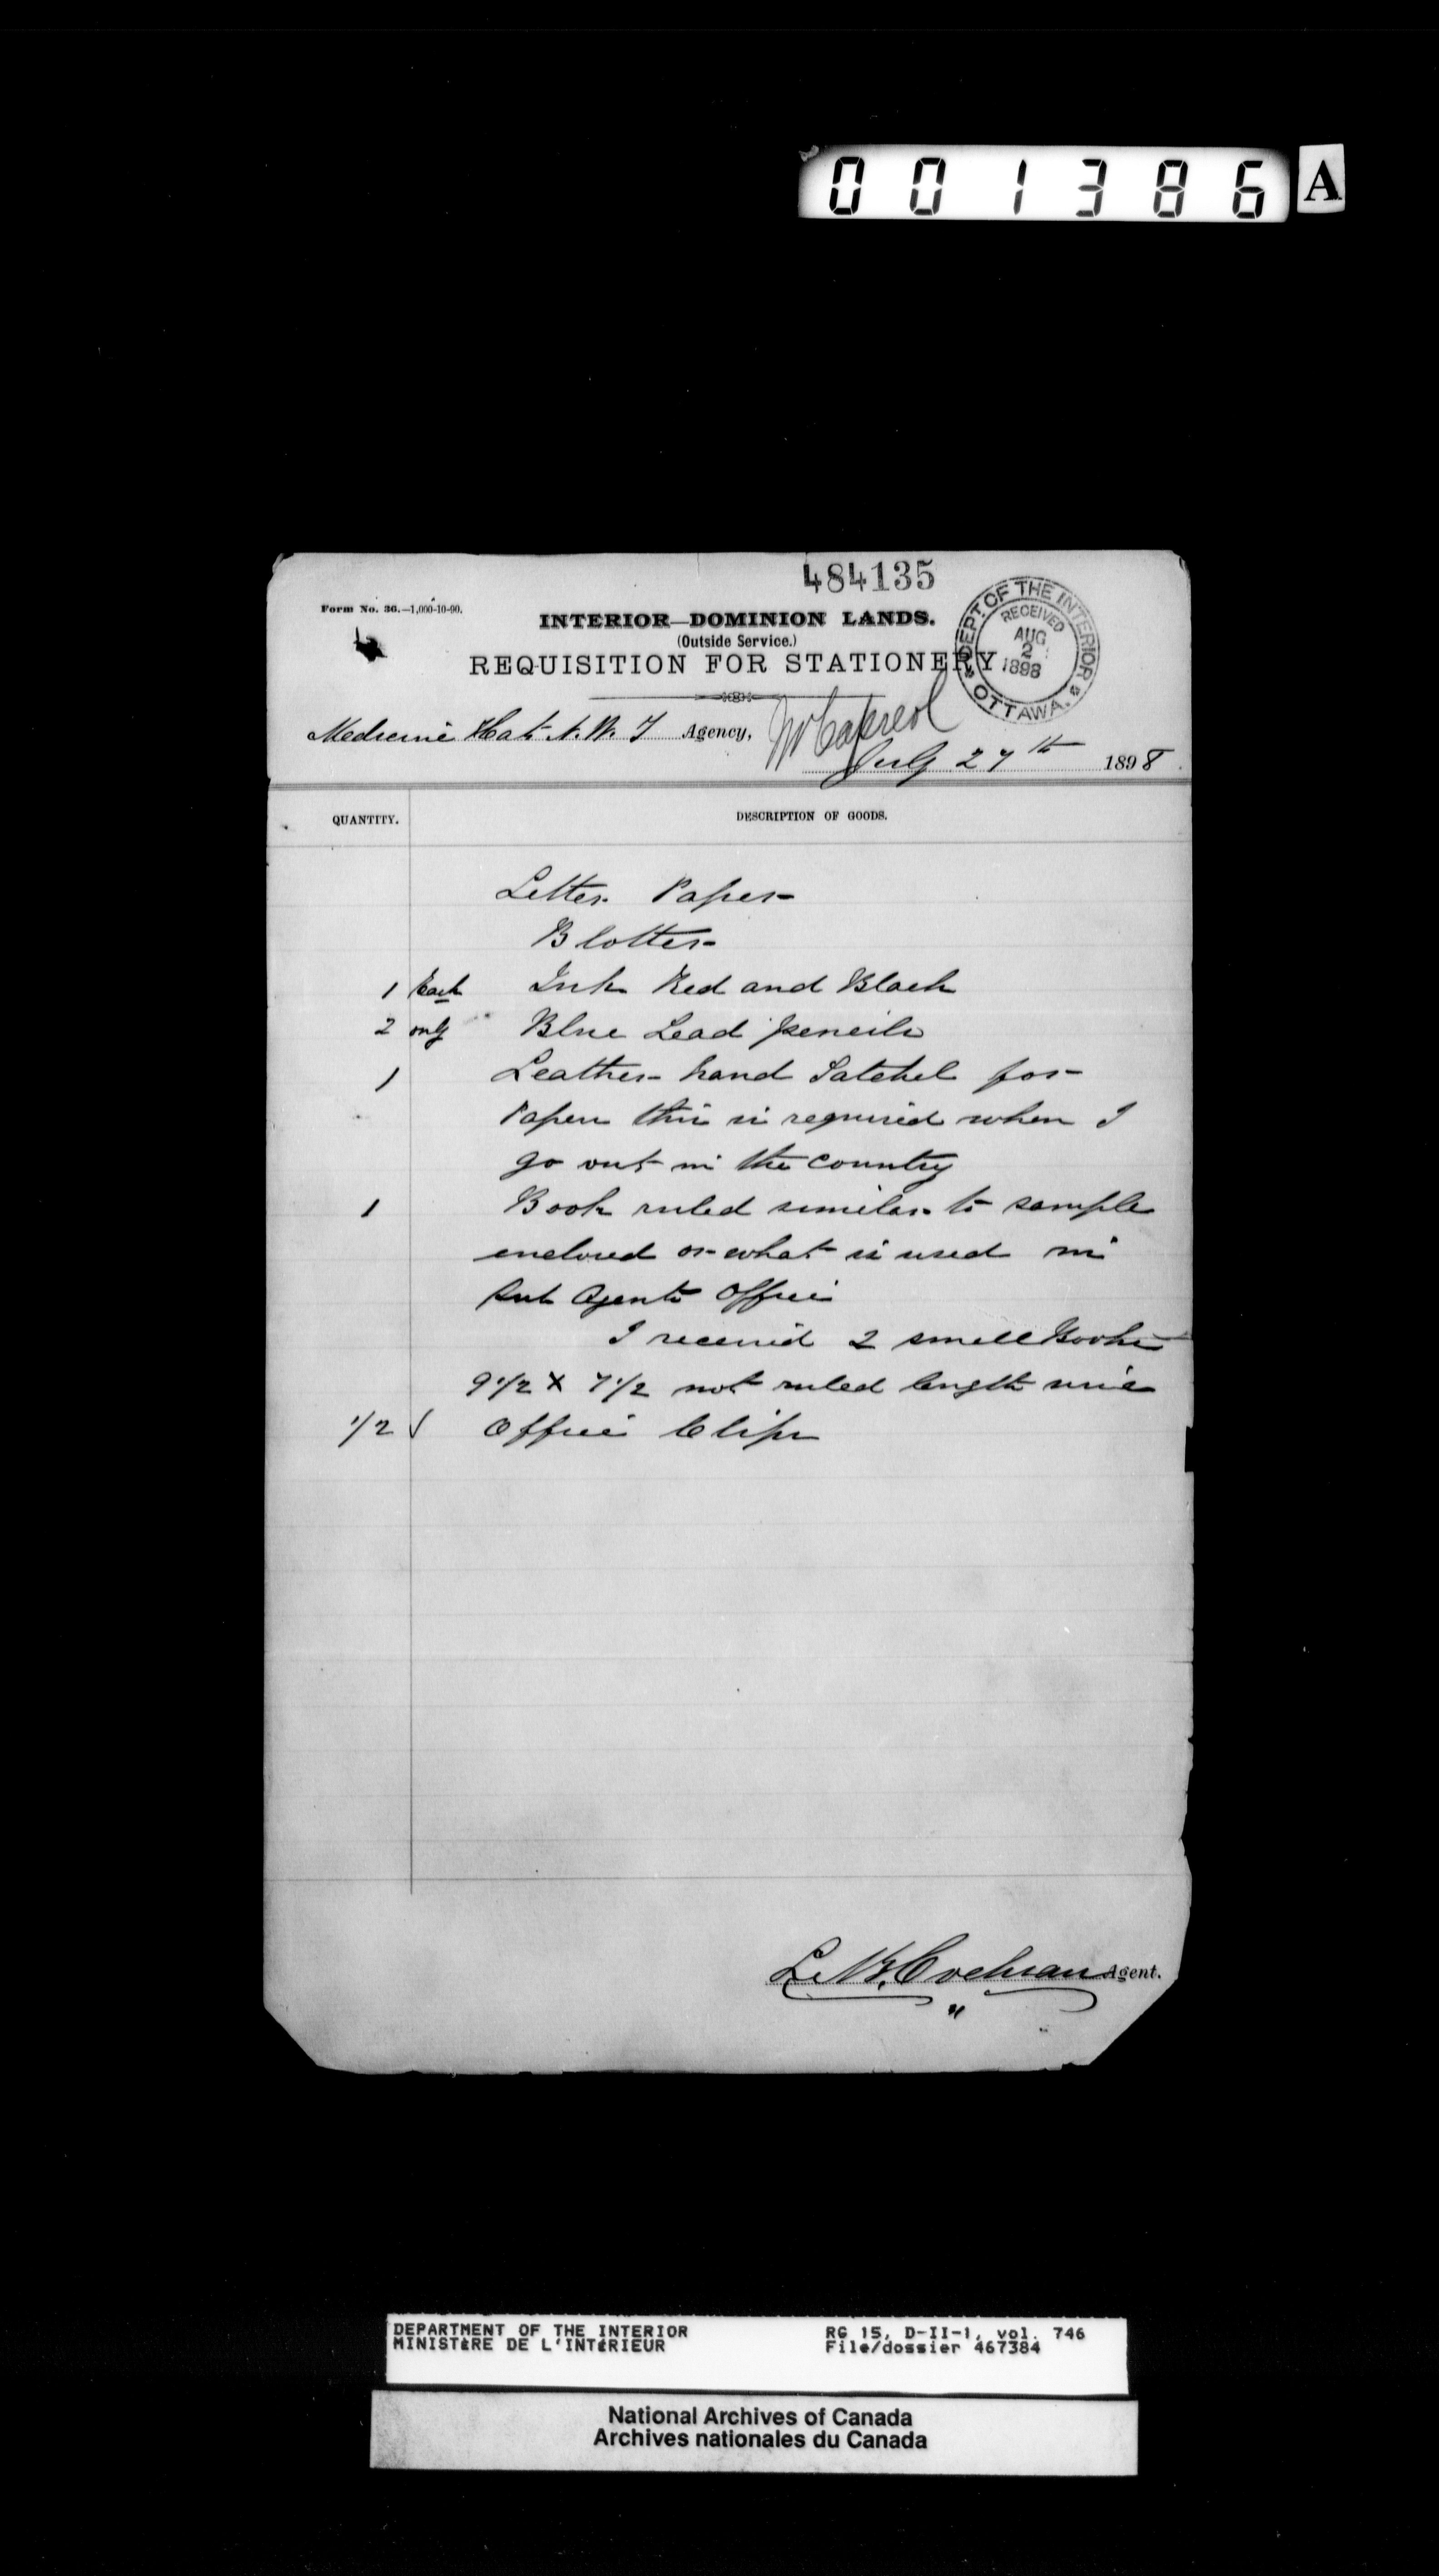 001386 A
484135
Form No. 36.—1,000-10-90.
INTERIOR—DOMINION LANDS.
(Outside Service.)
REQUISITION FOR STATIONERY
DEPT. OF THE INTERIOR
RECEIVED
AUG
2
1898
OTTAWA.
Medicine Hat N.W.T Agency, Capreol
July 27th 1898
QUANTITY. DESCRIPTION OF GOODS.
Letter Paper
Blotter
1 Each Ink Red and Black
2 only Blue Lead pencils
1 Leather hand Satchel for
Papers this is required when I
go out in the country
1 Book ruled similar to sample
enclosed or what is used in
Sub Agents Office
I received 2 small Books
9 1/2 x 7 1/2 not ruled length wise
1/2 Office Clips
Cochran Agent.
DEPARTMENT OF THE INTERIOR RG 15, D-II-1, vol. 746
MINISTÈRE DE L'INTÉRIEUR File/dossier 467384
National Archives of Canada
Archives nationales du Canada